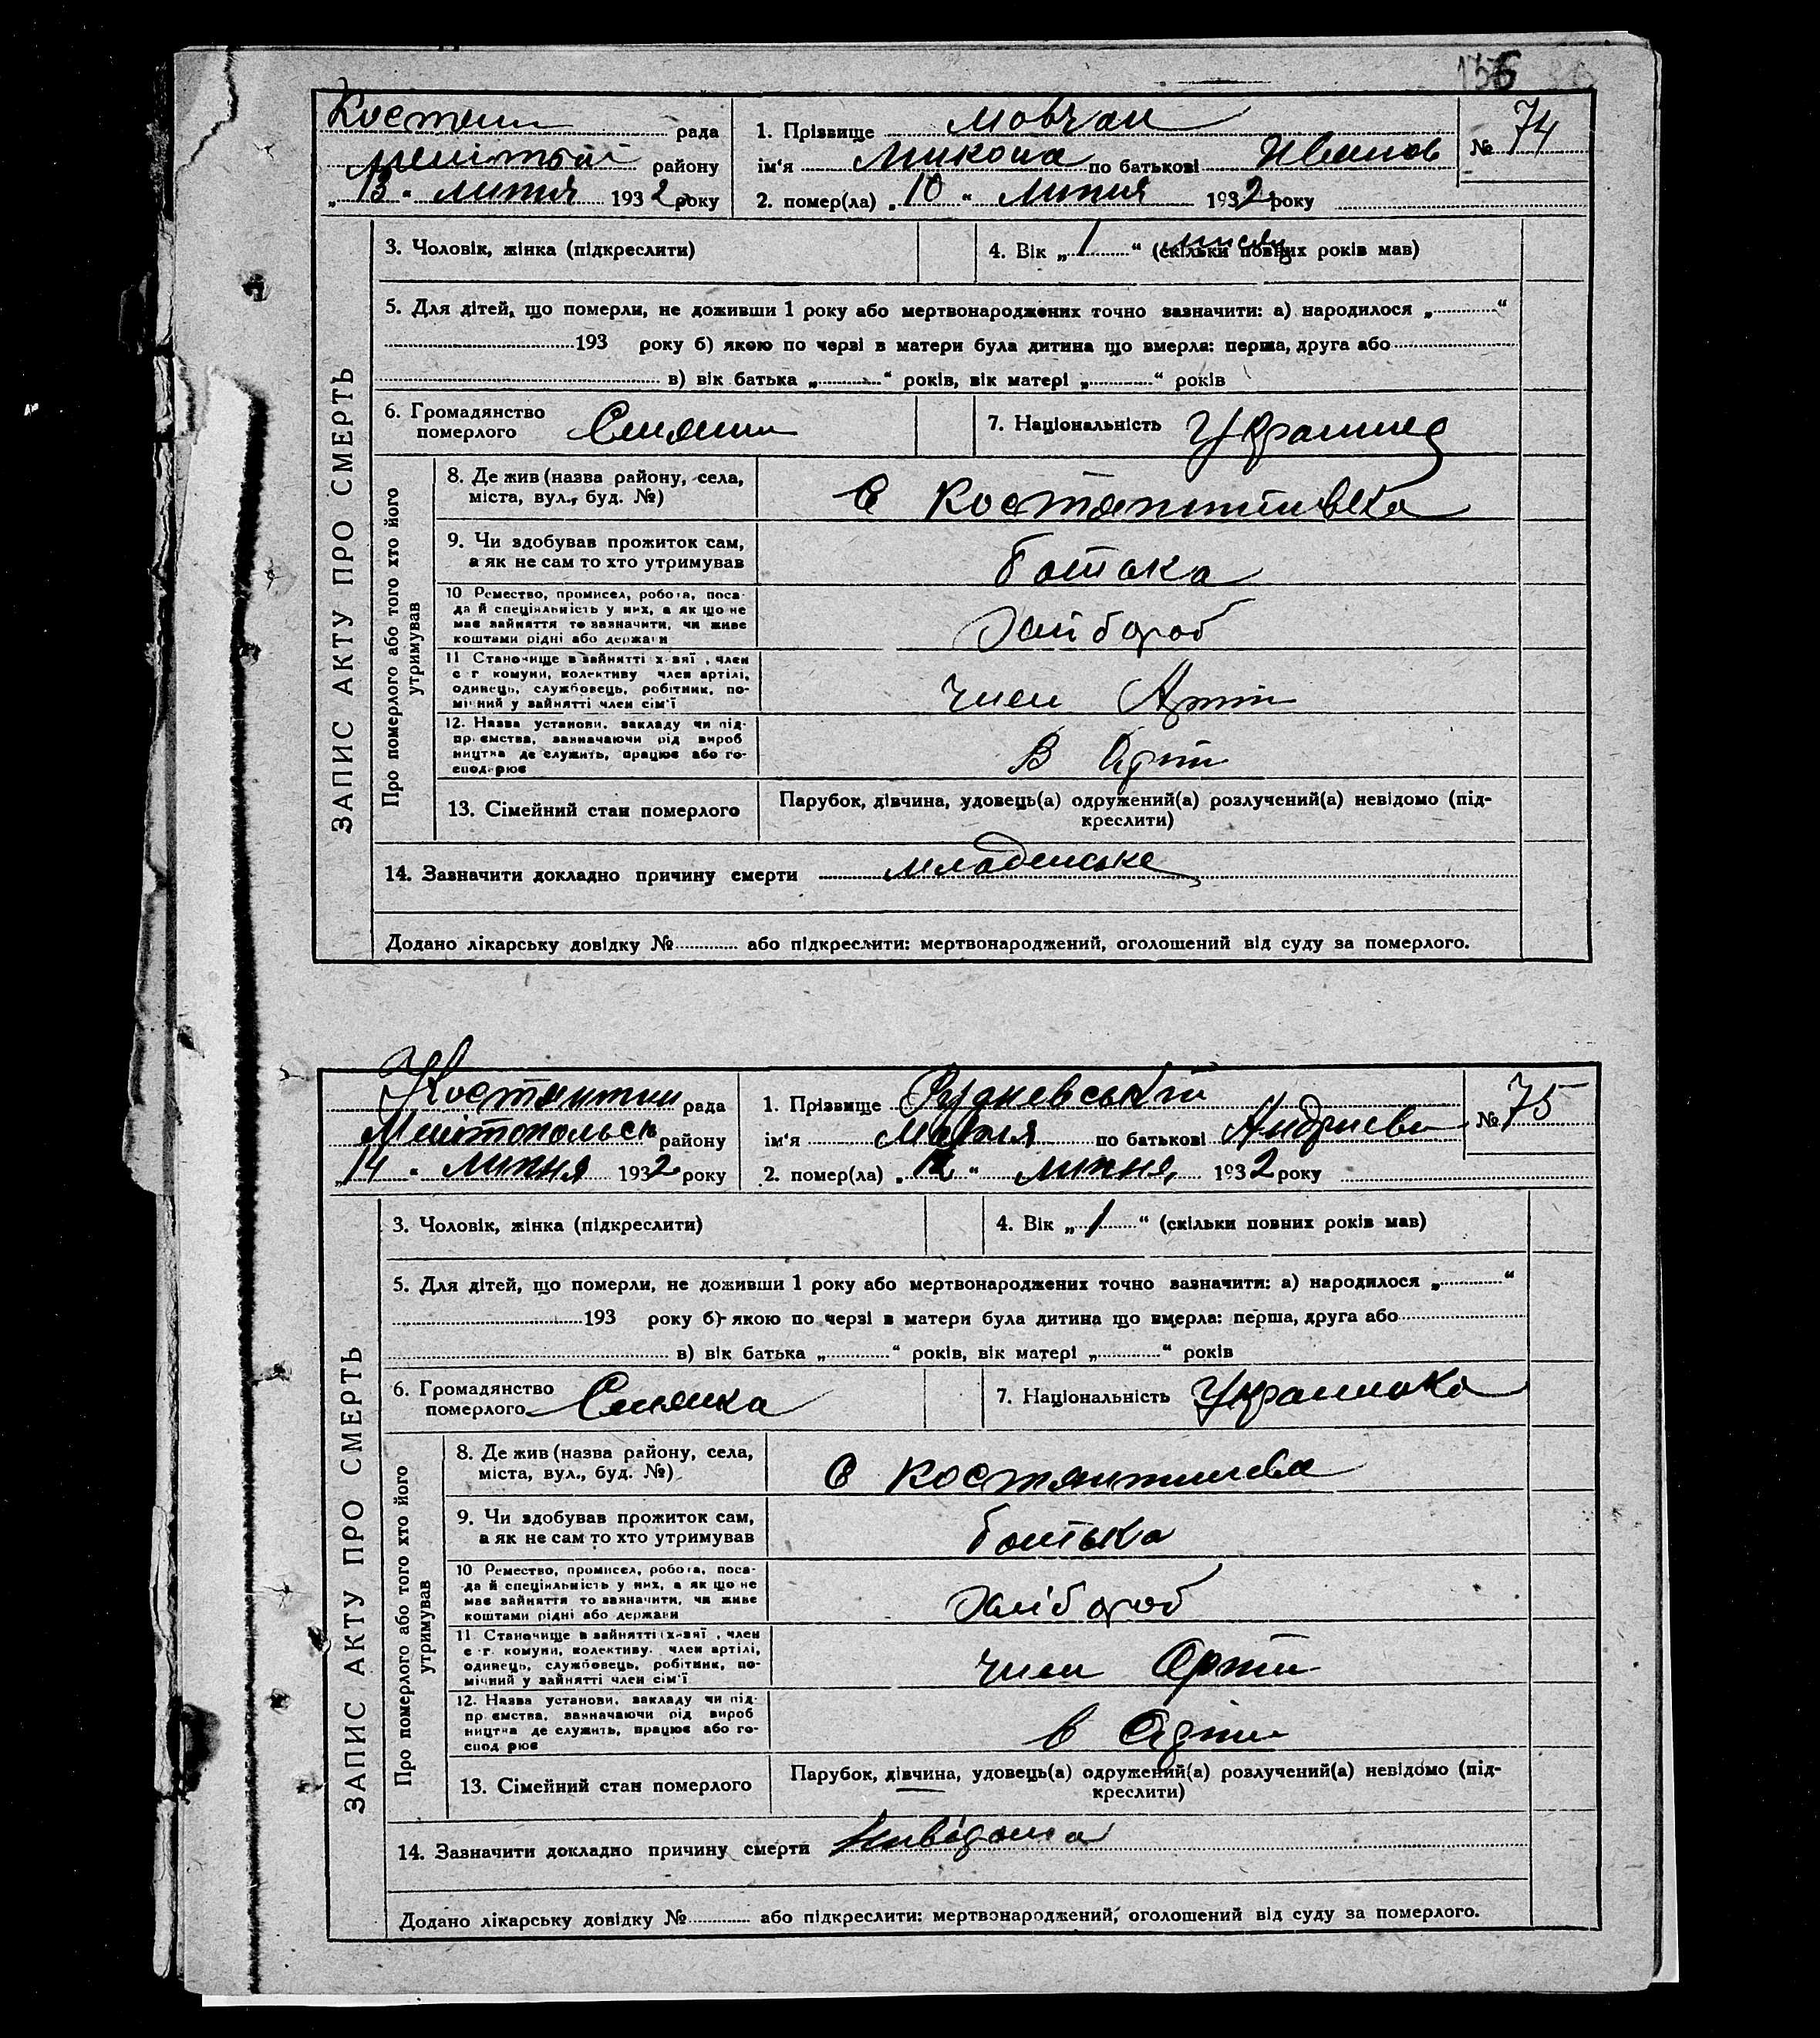 136
Костян рада 1. Прізвище Мовчан № 74
району ім‘я Микола по батькові Иванов
„13“ липня 1932 року 2. помер(ла) „10“ Липня 1932 року
3. Чоловік, жінка (підкреслити) 4. Вік „1“ (скільки повних років мав)
5. Для дітей, що померли, не доживши 1 року або мертвонароджених точно зазначити: а) народилося „ “
193 року б) якою по черзі в матери була дитина що вмерла: перша, друга або
в) вік батька „ “ років, вік матері „ “ років
6. Громадянство померлого Селянин 7. Національність Украинец
ЗАПИС АКТУ ПРО СМЕРТЬ
Про померлого або того хто його утримував
8. Де жив (назва району, села,
міста, вул., буд. №) С Костянтинівка
9. Чи здобував прожиток сам,
а як не сам то хто утримував батька
10 Ремество, промисел, робота, поса-
да й спеціяльність у них, а як що не
має зайняття то зазначити, чи живе
коштами рідні або держави Хлібороб
11 Становище в зайнятті х-вяї, член
с г комуни, колективу член артілі,
одинець, службовець, робітник, по-
мічний у зайнятті член сім‘ї член Арті
12. Назва установи, закладу чи під-
приємства, зазначаючи рід вироб
ництва де служить, працює або го-
сподарює В Арті
13. Сімейний стан померлого Парубок, дівчина, удовець(а) одружений(а) розлучений(а) невідомо (під-
креслити)
14. Зазначити докладно причину смерти младенське
Додано лікарську довідку № або підкреслити: мертвонароджений, оголошений від суду за померлого.
Костянтин рада 1. Прізвище № 75
Мелітопольск району ім‘я Мария по батькові Андриевн
„14“ липня 1932 року 2. помер(ла) „12“ липня 1932 року
3. Чоловік, жінка (підкреслити) 4. Вік „1“ (скільки повних років мав)
5. Для дітей, що померли, не доживши 1 року або мертвонароджених точно зазначити: а) народилося „ “
193 року б) якою по черзі в матери була дитина що вмерла: перша, друга або
в) вік батька „ “ років, вік матері „ “ років
6. Громадянство померлого Селянка 7. Національність Украинка
ЗАПИС АКТУ ПРО СМЕРТЬ
Про померлого або того хто його утримував
8. Де жив (назва району, села,
міста, вул., буд. №) С Костянтинівка
9. Чи здобував прожиток сам,
а як не сам то хто утримував батька
10 Ремество, промисел, робота, поса-
да й спеціяльність у них, а як що не
має зайняття то зазначити, чи живе
коштами рідні або держави Хлібороб
11 Становище в зайнятті х-вяї, член
с-г. комуни, колективу. член артілі,
одинець, службовець, робітник, по-
мічний у зайнятті член сім‘ї член Арті
12. Назва установи, закладу чи під-
приємства, зазначаючи рід вироб
ництва де служить, працює або го-
сподарює в Арті
13. Сімейний стан померлого Парубок, дівчина, удовець(а) одружений(а) розлучений(а) невідомо (під-
креслити)
14. Зазначити докладно причину смерти
Додано лікарську довідку № або підкреслити: мертвонароджений, оголошений від суду за померлого.